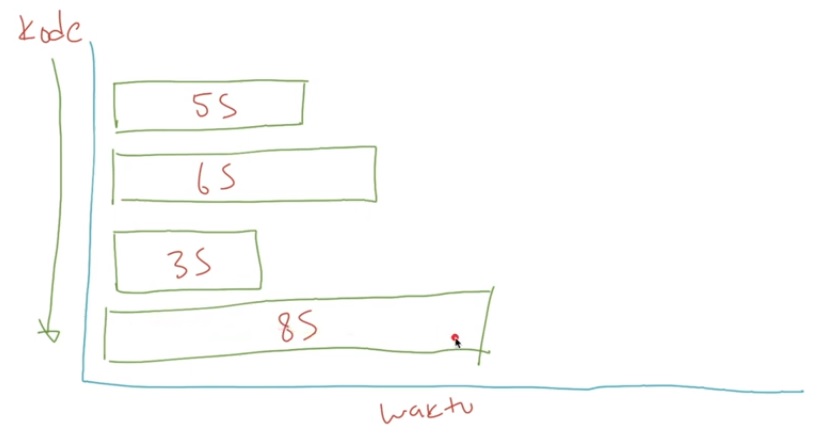 Kode
5S
6S
3S
8S
Waktu